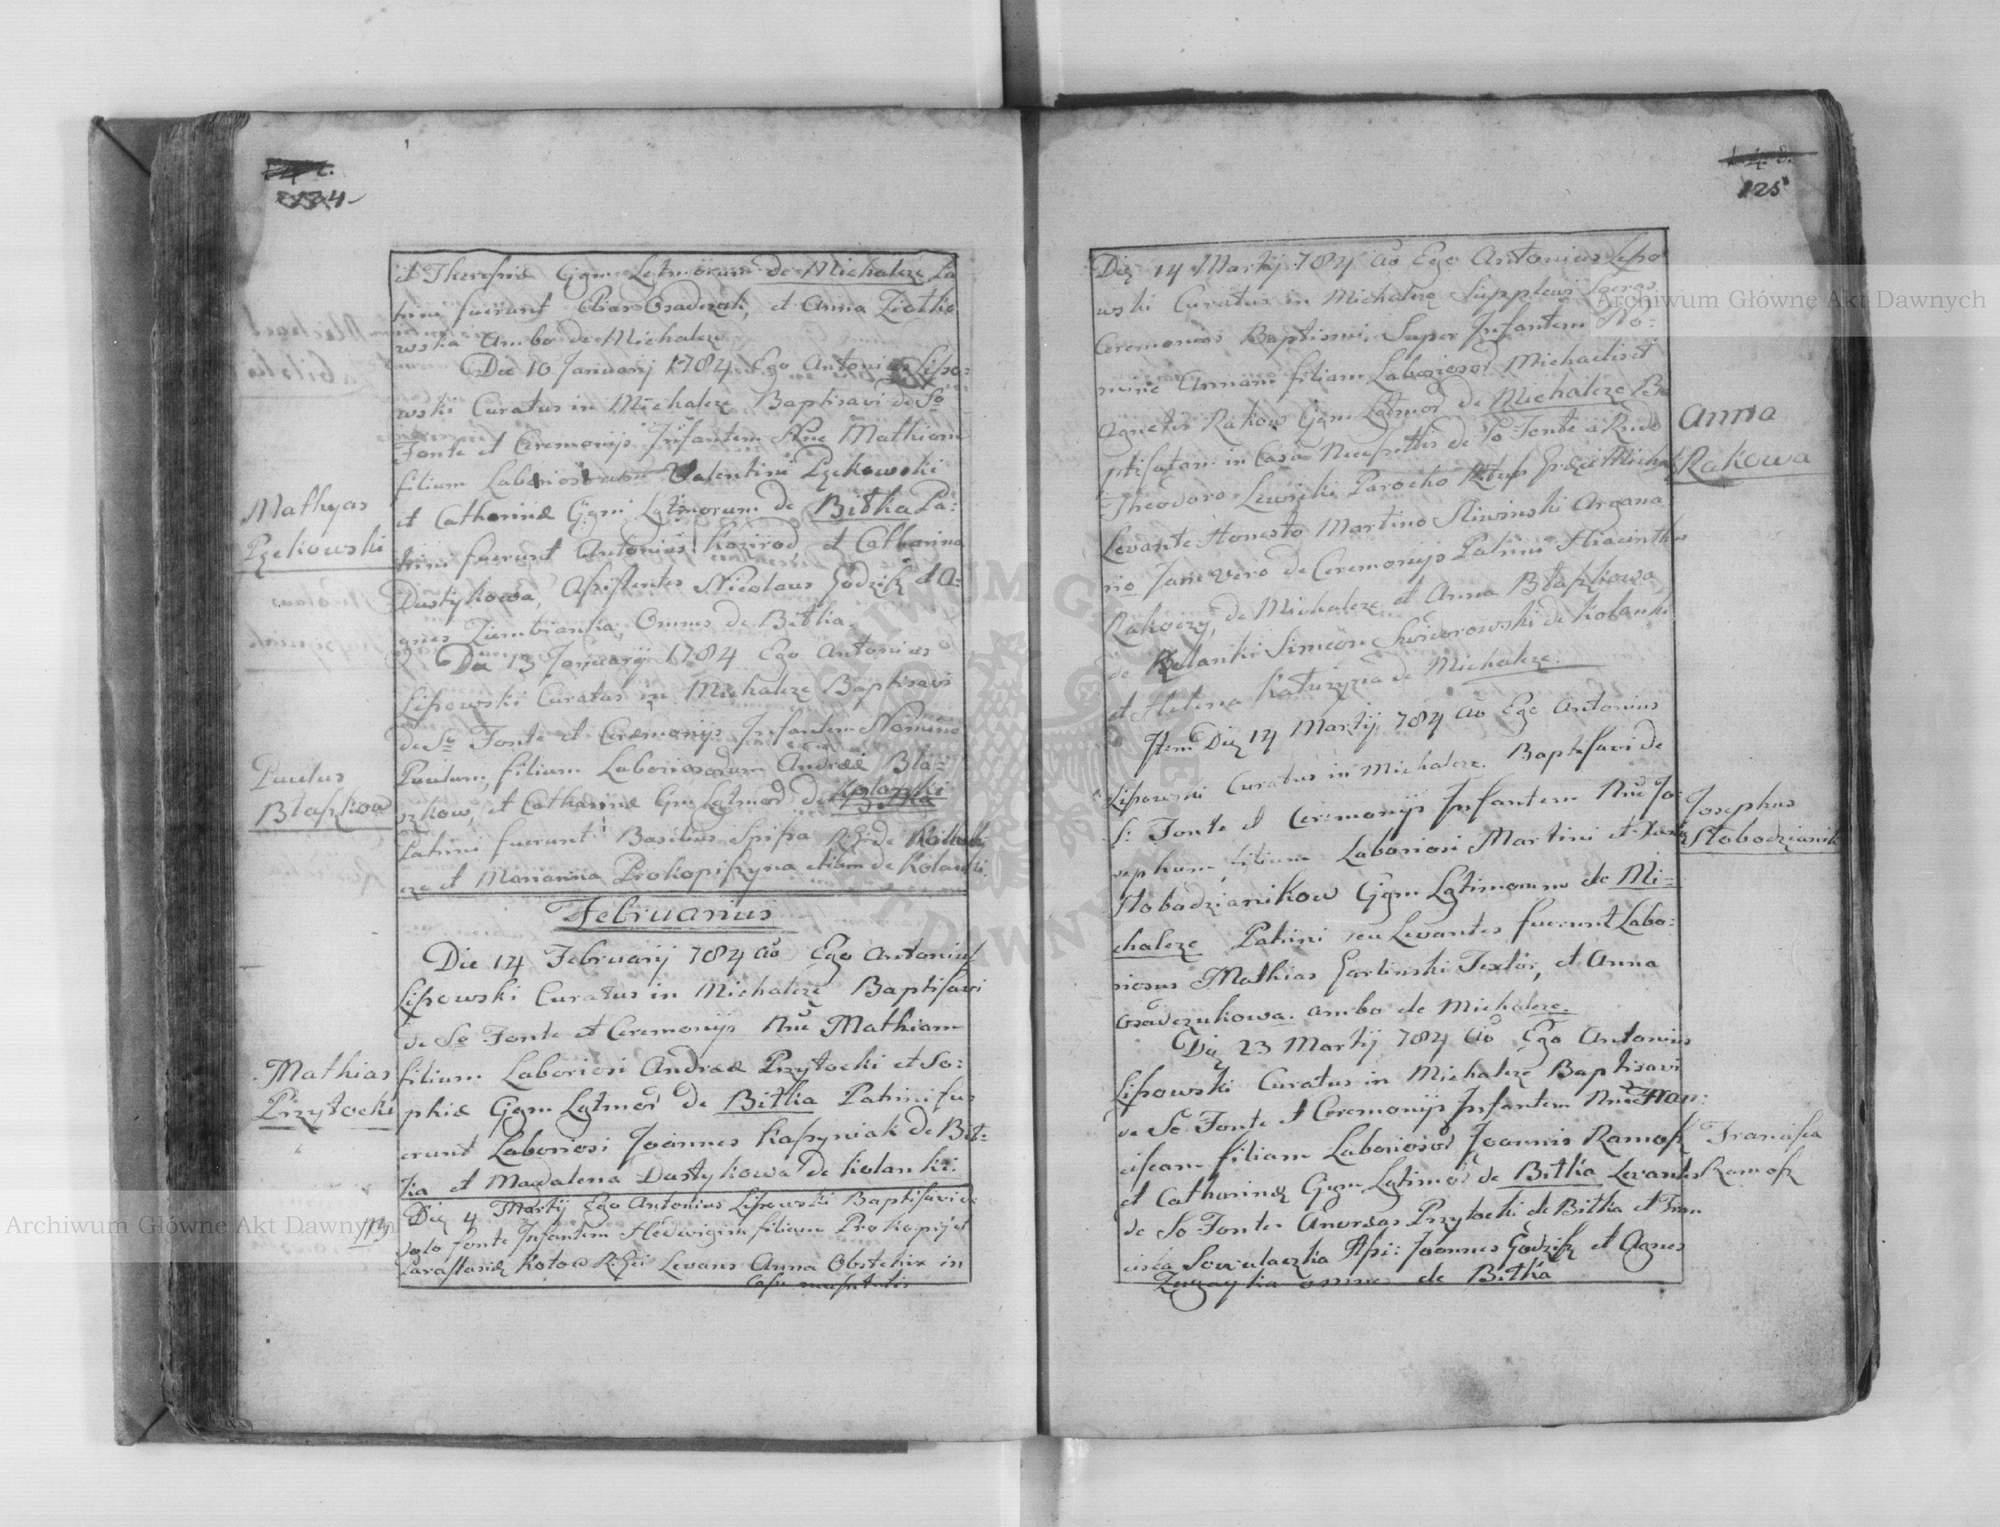 124
et Theresiæ Cgm Lgtmorum de Michalcze Pa
trini fuerunt Elias Osadczuk, et Anna Ziółko
wska Ambo de Michalcze
Die 10 Januarij 1784 Ego Antonius Lipo=
wski Curatus in Michalcze Baptisavi de So
Fonte et Ceremonijs Infantem Nne Mathiam
filium Laboriosorum Valentini Pzekowski
et Catharinæ Cgm Lgtmorum de Bitka Pa:
trini fuerunt Antonius Kozirod, et Catharina
Dustykowa, Assistentes Nicolaus Godzisz et A=
gnes Ziembianka, Omnes de Bitlia
Mathyas
Pzekowski
Die 13 Januarij 1784 Ego Antonius
Lipowski Curatus in Michalcze Baptisavi
de So Fonte et Ceremonijs Infantem Nomine
Paulum, filium Laboriosorum Andreæ Bła=
szkow, et Catharinæ Cgm Lgtmor de Kolanki
Patrini fuerunt Basilius Spisa de
cze et Marianna Prokopiszyna etiam de Kolanki
Paulus
Błaszkow
Februarius
Die 14 Februarij 784 ao Ego Antonius
Lipowski Curatus in Michalcze Baptisavi
de So Fonte et Ceremonijs Nne Mathiam
filium Laboriosi Andreæ Przytocki et So:
phiæ Cgm Lgtmor de Bitlia Patrini fu
erunt Laboriosi Joannes Kaspyniak de Bit=
lia et Magdalena Dustykowa de Kolanki
Mathias
Przytocki
Die 4 Martij Ego Antonius Lipowski Baptisavi de
solo fonte Infantem Hedvigim filiam Prokopij et
Parastaniæ Kotow Levans Anna Obstetrix in
Casu necessitatis
125
Die 14 Martij 784 ao Ego Antonius Lipo
wski Curatus in Michalcze Supplevi Sacras
Ceremonias Baptismi, Super Infantem No=
mine Annam filiam Laboriosor Michaelis et
Agnetis Rakow Cgm Lgtmor de Michalcze Ba
ptisatam in Casu Necessttis de So Fonte a Rndo
Theodoro Lewicki Parocho Michal
Levante Honesto Martino Sliwinski Organa
rio Jam vero de Ceremonijs Patrini Hiacinthus
Rakoczy, de Michalcze et Anna Błaszkowa
de Kolanki Simeon Swidorowski de Kolanki
et Helena Katuzyna de Michalcze.
Anna
Rakowa
Item Die 14 Martij 784 ao Ego Antonius
Lipowski Curatus in Michalcze Baptisavi de
S: Fonte et Ceremonijs Infantem Nne Jo
sephum, filium Laboriosi Martini et
Słobodzianikow Cgm Lgtimorum de Mi=
chalcze Patrini seu Levantes fuerunt Labo:
riosus Mathias Garlinski Textor, et Anna
Osadczukowa. ambo de Michalcze.
Josephus
Słobodzianik
Die 23 Martij 784 ao Ego Antonius
Lipowski Curatus in Michalcze Baptisavi
de So Fonte et Ceremonijs Infantem Nne Fran:
ciscam filiam Laboriosor Joannis Ramosz
et Catharinæ Cgm Lgtimor de Bitlia Levantes
de So Fonte Andreas Przytocki de Bitka et Fran
cisca Sowulaczka Assi: Joannes Godzisz et Agnes
Zugayka omnes de Bitka
Francisca
Ramosz
Archiwum Główne Akt Dawnych
Archiwum Główne Akt Dawnych